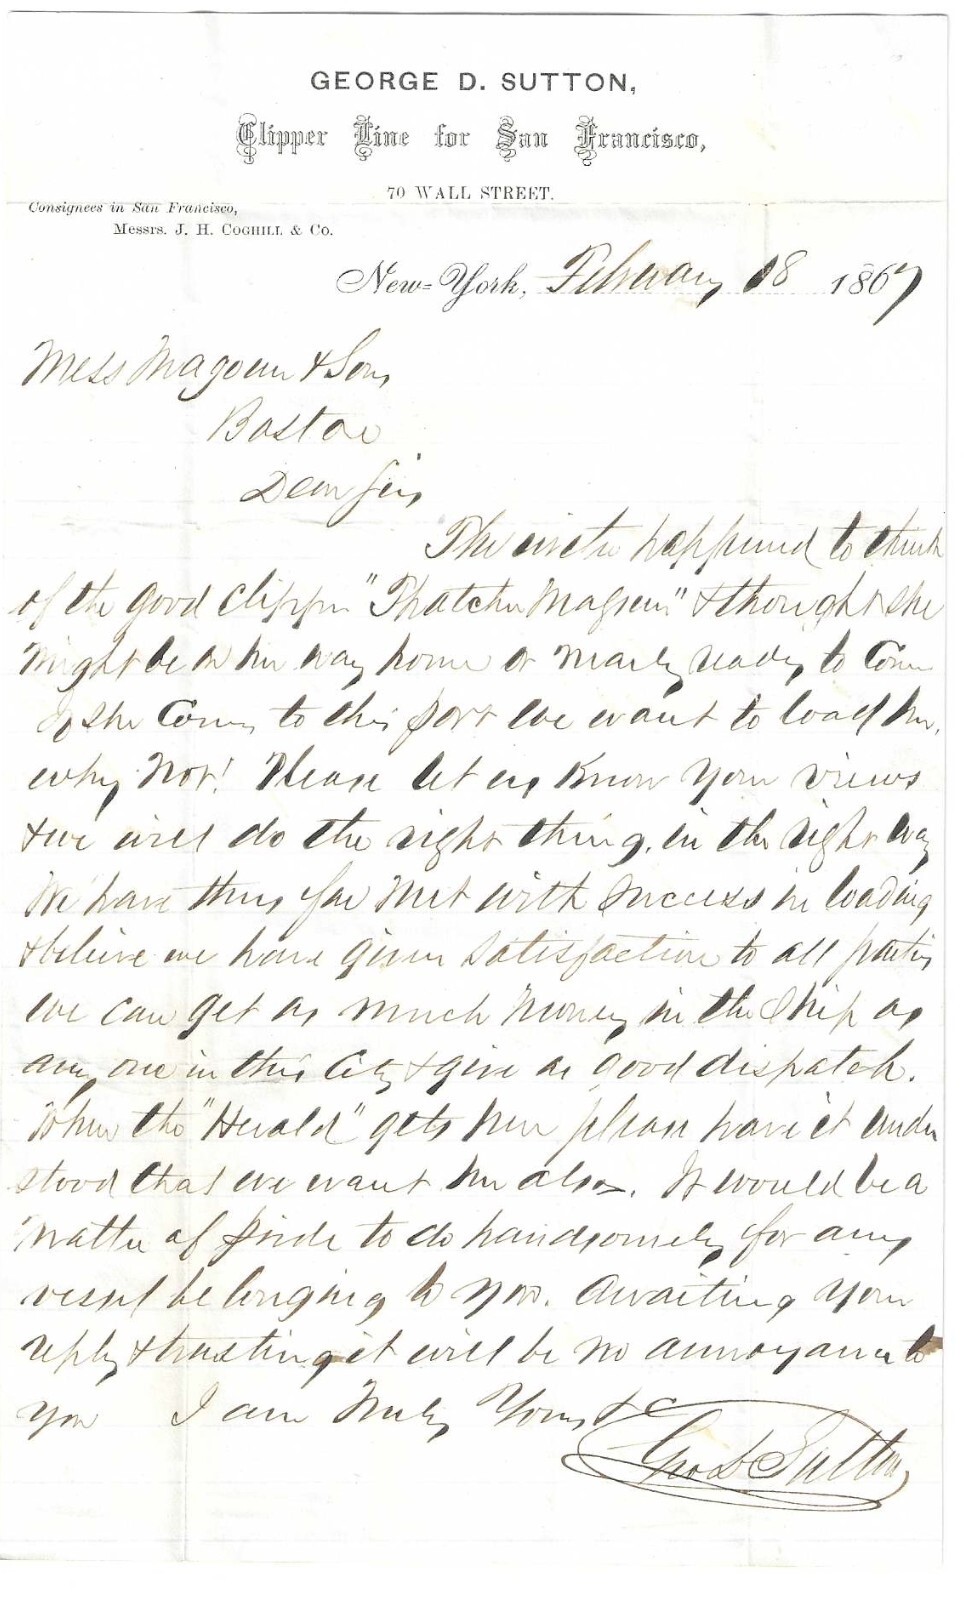 GEORGE D. SUTTON,
Clipper Line for San Francisco,
70 WALL STREET.
Consignees in San Francisco,
Messrs. J. H. COGHILL & Co.
New-York, February 18 1867
Mess Magoun & Sons
Boston
Dear Sirs
The writer happened to think
of the good clipper "Thatcher Magoun" & thought she
might be on her way home or nearly ready to come
If she comes to this port we want to load her.
why not! Please let us know your views
& we will do the right thing, in the right way
We have thus far met with success in loading
& believe we have given satisfaction to all parties
we can get as much money in the ship as
any one in this city & give as good dispatch.
When the "Herald" gets here please have it under
stood that we want her also. It would be a
matter of pride to do handsomely for any
vessel belonging to you. Awaiting your
reply & trusting it will be no annoyance to
you I am Truly Yours &c
Geo D Sutton